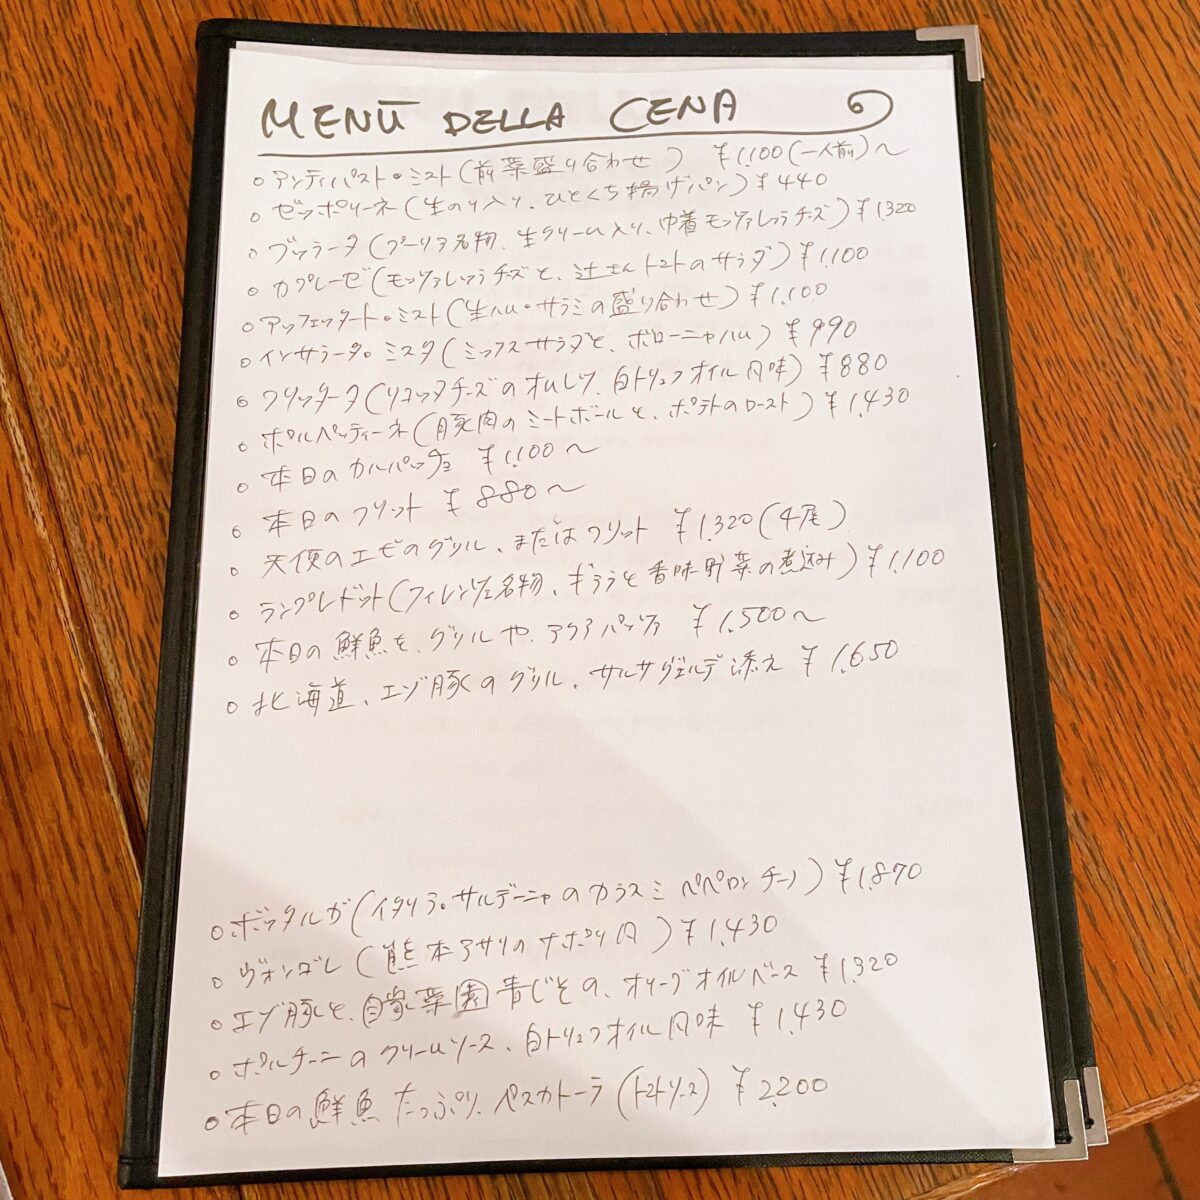 MENÙ DELLA CENA
○ アンティパスト・ミスト(前菜盛り合わせ) ¥1,100(一人前)〜
○ ゼッポリーネ(生のり入り、ひとくち揚げパン)¥440
○ ブッラータ(プーリア名物、生クリーム入り、巾着モッツァレッラチーズ)¥1320
○ カプレーゼ(モッツァレッラチーズと、辻さんトマトのサラダ)¥1,100
○ アッフェッタート・ミスト(生ハム・サラミの盛り合わせ)¥1,100
○ インサラータ・ミスタ(ミックスサラダと、ボローニャハム)¥990
○ フリッタータ(リコッタチーズのオムレツ、白トリュフオイル風味)¥880
○ ポルペッティーネ(豚肉のミートボールと、ポテトのロースト)¥1,430
○ 本日のカルパッチョ ¥1,100〜
○ 本日のフリット ¥880〜
○ 天使のエビのグリル、またはフリット ¥1,320(4尾)
○ ランプレドット(フィレンツェ名物、ギアラと香味野菜の煮込み)¥1,100
○ 本日の鮮魚を、グリルや、アクアパッツァ ¥1,500〜
○ 北海道、エゾ豚のグリル、サルサヴェルデ添え ¥1,650
○ ボッタルガ(イタリア・サルデーニャのカラスミ ペペロンチーノ)¥1,870
○ ヴォンゴレ(熊本アサリのナポリ風)¥1,430
○ エゾ豚と、自家菜園青じその、オリーブオイルベース ¥1,320
○ ポルチーニのクリームソース、白トリュフオイル風味 ¥1,430
○ 本日の鮮魚たっぷり、ペスカトーラ(トマトソース) ¥2,200